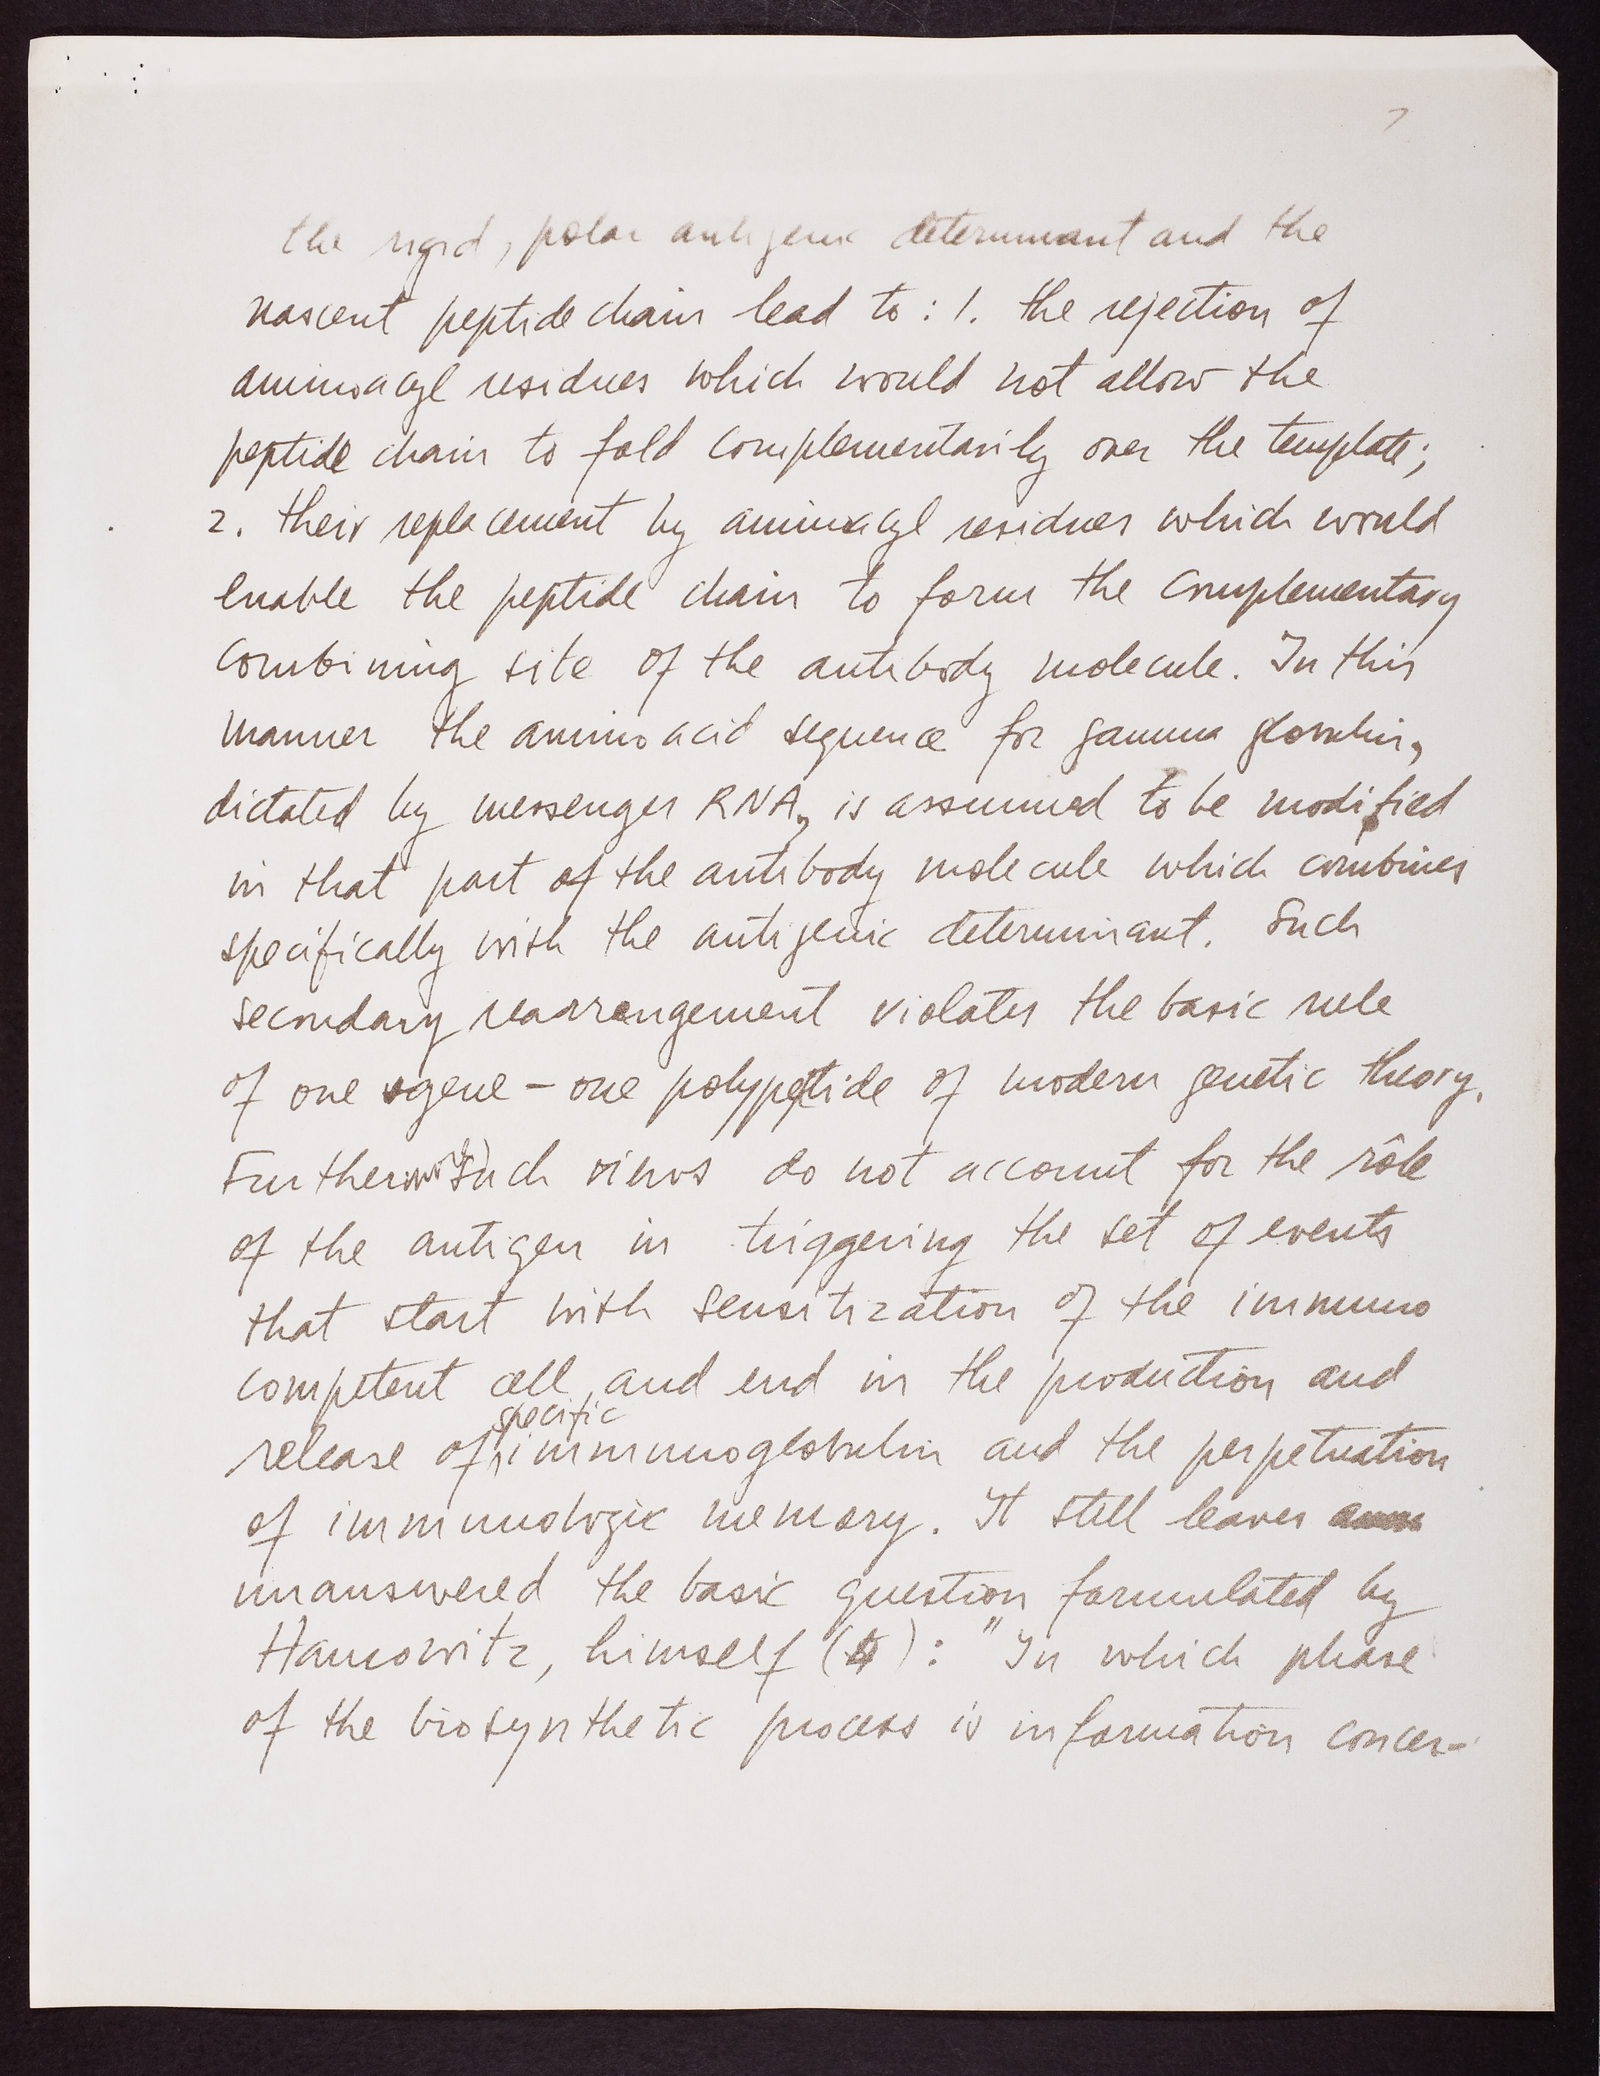 7
the rigid, polar antigenic determinant and the
nascent peptide chain lead to : 1. the rejection of
aminoacyl residues which would not allow the
peptide chain to fold complementarily over the template;
2. their replacement by aminoacyl residues which would
enable the peptide chain to form the complementary
combining site of the antibody molecule. In this
manner the amino acid sequence for gamma globulin,
dictated by messenger RNA, is assumed to be modified
in that part of the antibody molecule which combines
specifically with the antigenic determinant. Such
secondary rearrangement violates the basic rule
of one gene - one polypeptide of modern genetic theory.
Further such views do not account for the rôle
of the antigen in triggering the set of events
that start with sensitization of the immuno
competent cell, and end in the production and
release of specific immunoglobulin and the perpetuation
of immunologic memory. It still leaves
unanswered the basic question formulated by
Haurowitz, himself (4) : "In which phase
of the biosynthetic process is information concer-